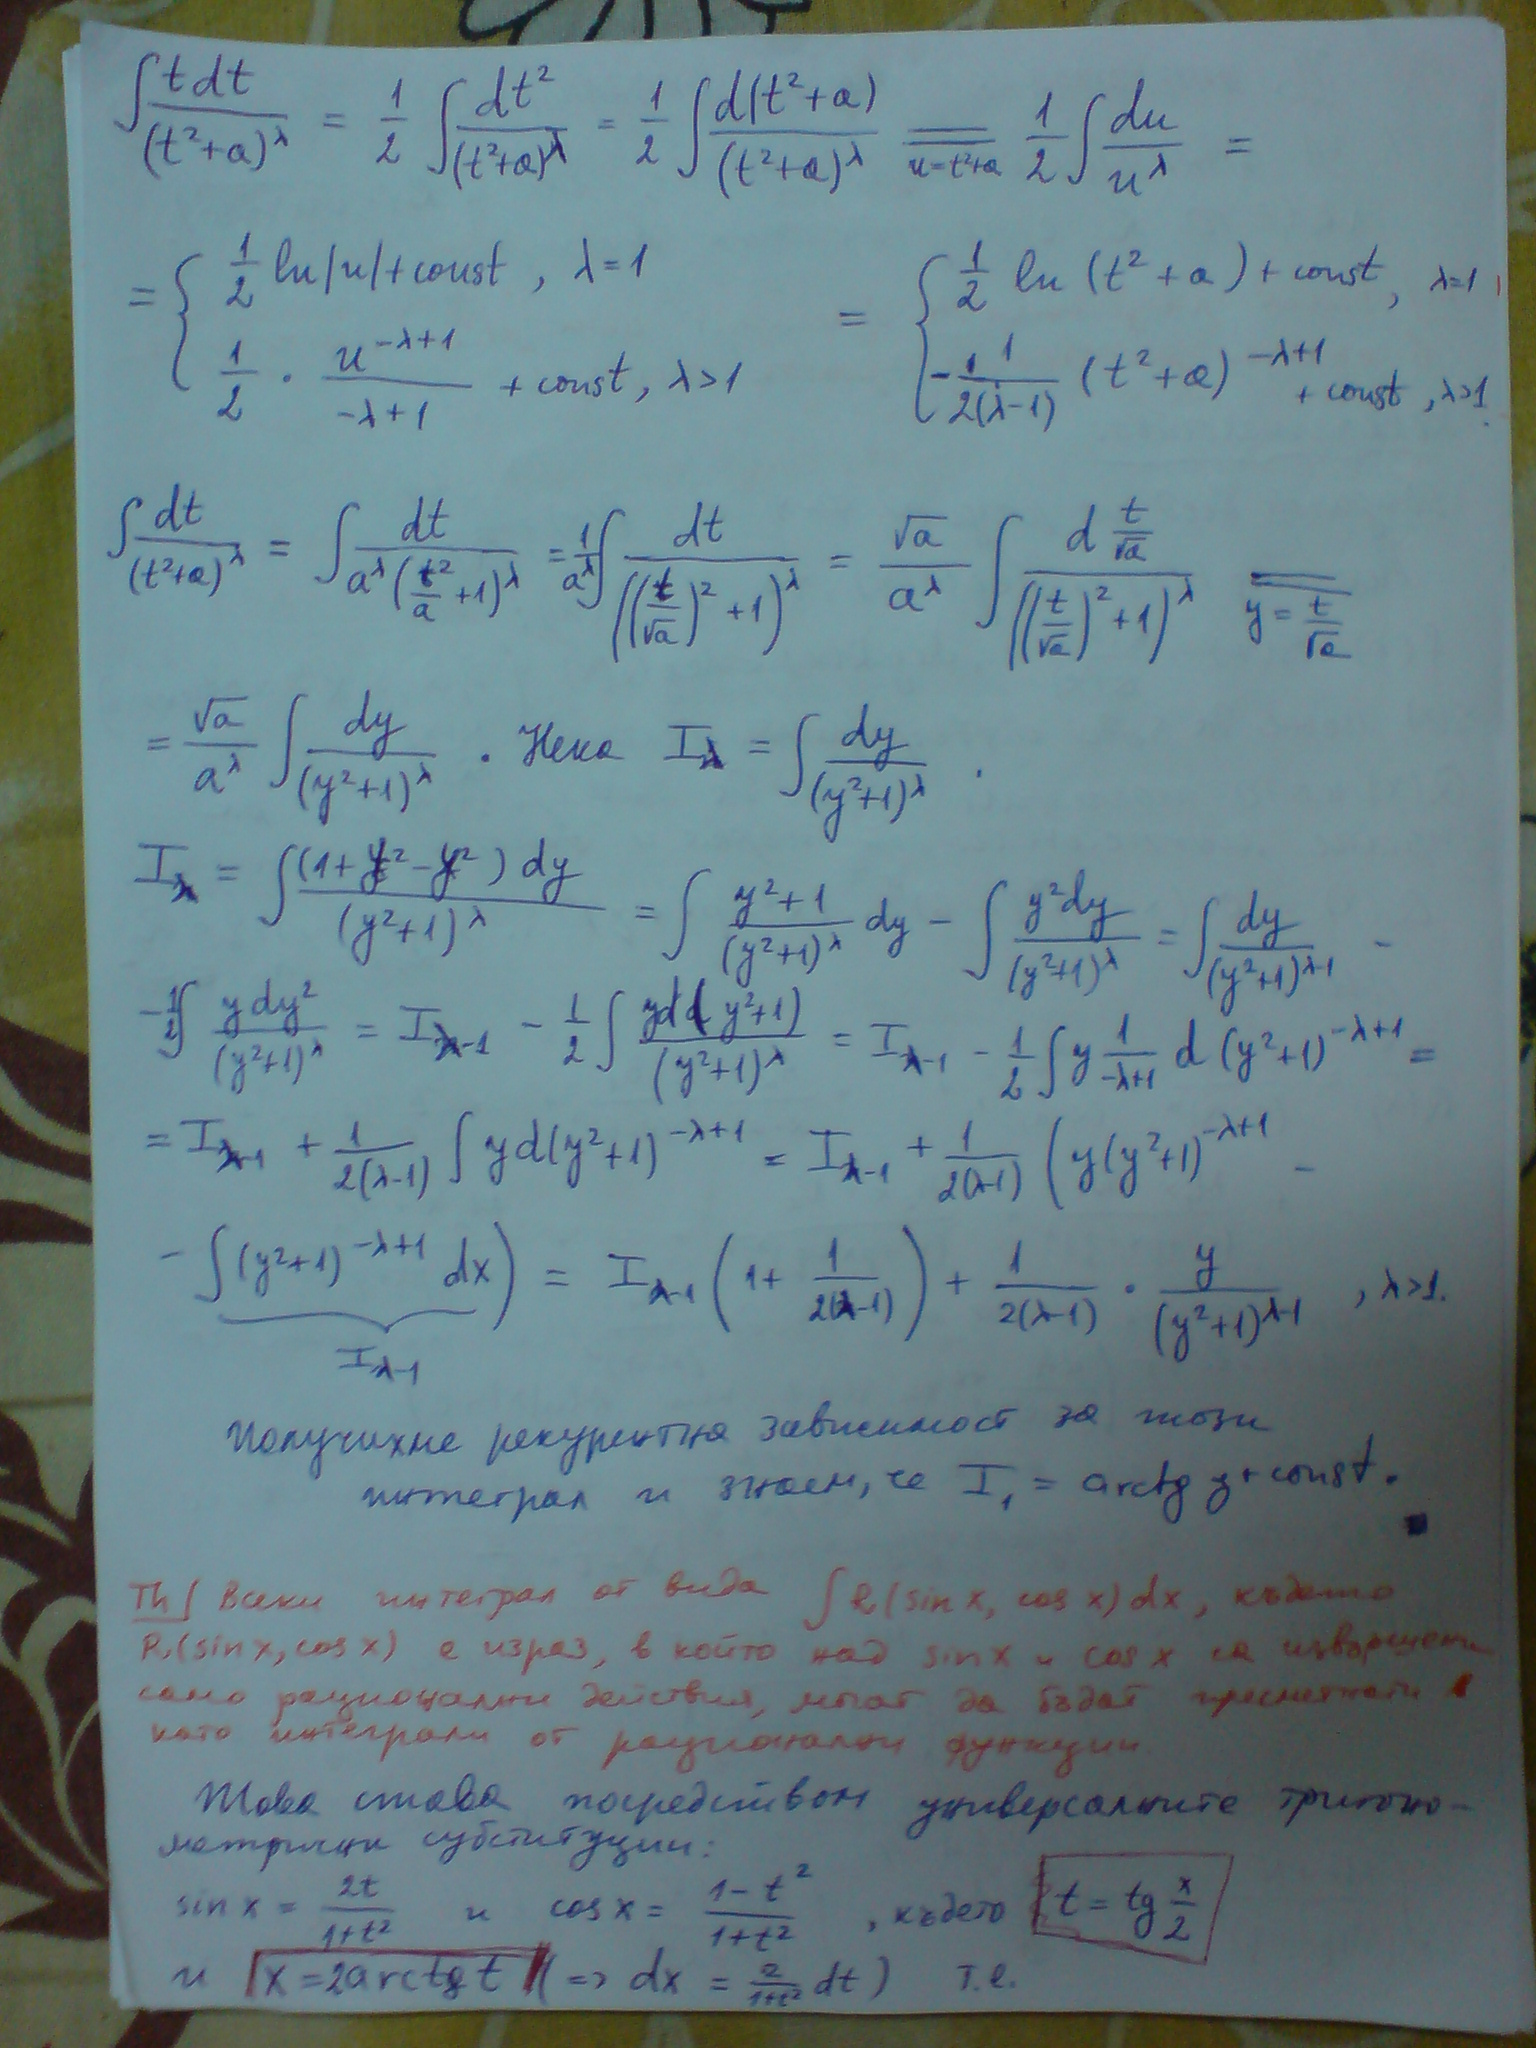 ∫ tdt/(t²+a)^λ = 1/2 ∫ dt²/(t²+a)^λ = 1/2 ∫ d(t²+a)/(t²+a)^λ =(u=t²+a) 1/2 ∫ du/u^λ =
= { 1/2 ln|u| + const, λ=1 ; 1/2 · u^(-λ+1)/(-λ+1) + const, λ>1 = { 1/2 ln (t²+a) + const, λ=1 ; -1/(2(λ-1)) (t²+a)^(-λ+1) + const, λ>1.
∫ dt/(t²+a)^λ = ∫ dt/(a^λ (t²/a +1)^λ) = 1/a^λ ∫ dt/((t/√a)² + 1)^λ = √a/a^λ ∫ d t/√a /((t/√a)² + 1)^λ =(y = t/√a)
= √a/a^λ ∫ dy/(y²+1)^λ . Нека I_λ = ∫ dy/(y²+1)^λ .
I_λ = ∫ (1+y²-y²) dy/(y²+1)^λ = ∫ (y²+1)/(y²+1)^λ dy - ∫ y²dy/(y²+1)^λ = ∫ dy/(y²+1)^(λ-1) -
- 1/2 ∫ y dy²/(y²+1)^λ = I_(λ-1) - 1/2 ∫ yd(y²+1)/(y²+1)^λ = I_(λ-1) - 1/2 ∫ y 1/(-λ+1) d (y²+1)^(-λ+1) =
= I_(λ-1) + 1/(2(λ-1)) ∫ yd(y²+1)^(-λ+1) = I_(λ-1) + 1/(2(λ-1)) (y(y²+1)^(-λ+1) -
- ∫ (y²+1)^(-λ+1) dx) = I_(λ-1) (1+ 1/(2(λ-1))) + 1/(2(λ-1)) · y/(y²+1)^(λ-1) , λ>1.
I_(λ-1)
Получихме рекурентна зависимост за този
интеграл и знаем, че I₁ = arctg y + const.
Th/ Всеки интеграл от вида ∫ R(sin x, cos x) dx, където
R(sin x, cos x) е израз, в който над sin x и cos x са извършени
само рационални действия, могат да бъдат пресметнати
като интеграли от рационални функции.
Това става посредством универсалните тригоно-
метрични субституции:
sin x = 2t/(1+t²) и cos x = (1-t²)/(1+t²) , където t = tg x/2
и x = 2arctg t (=> dx = 2/(1+t²) dt) т.е.